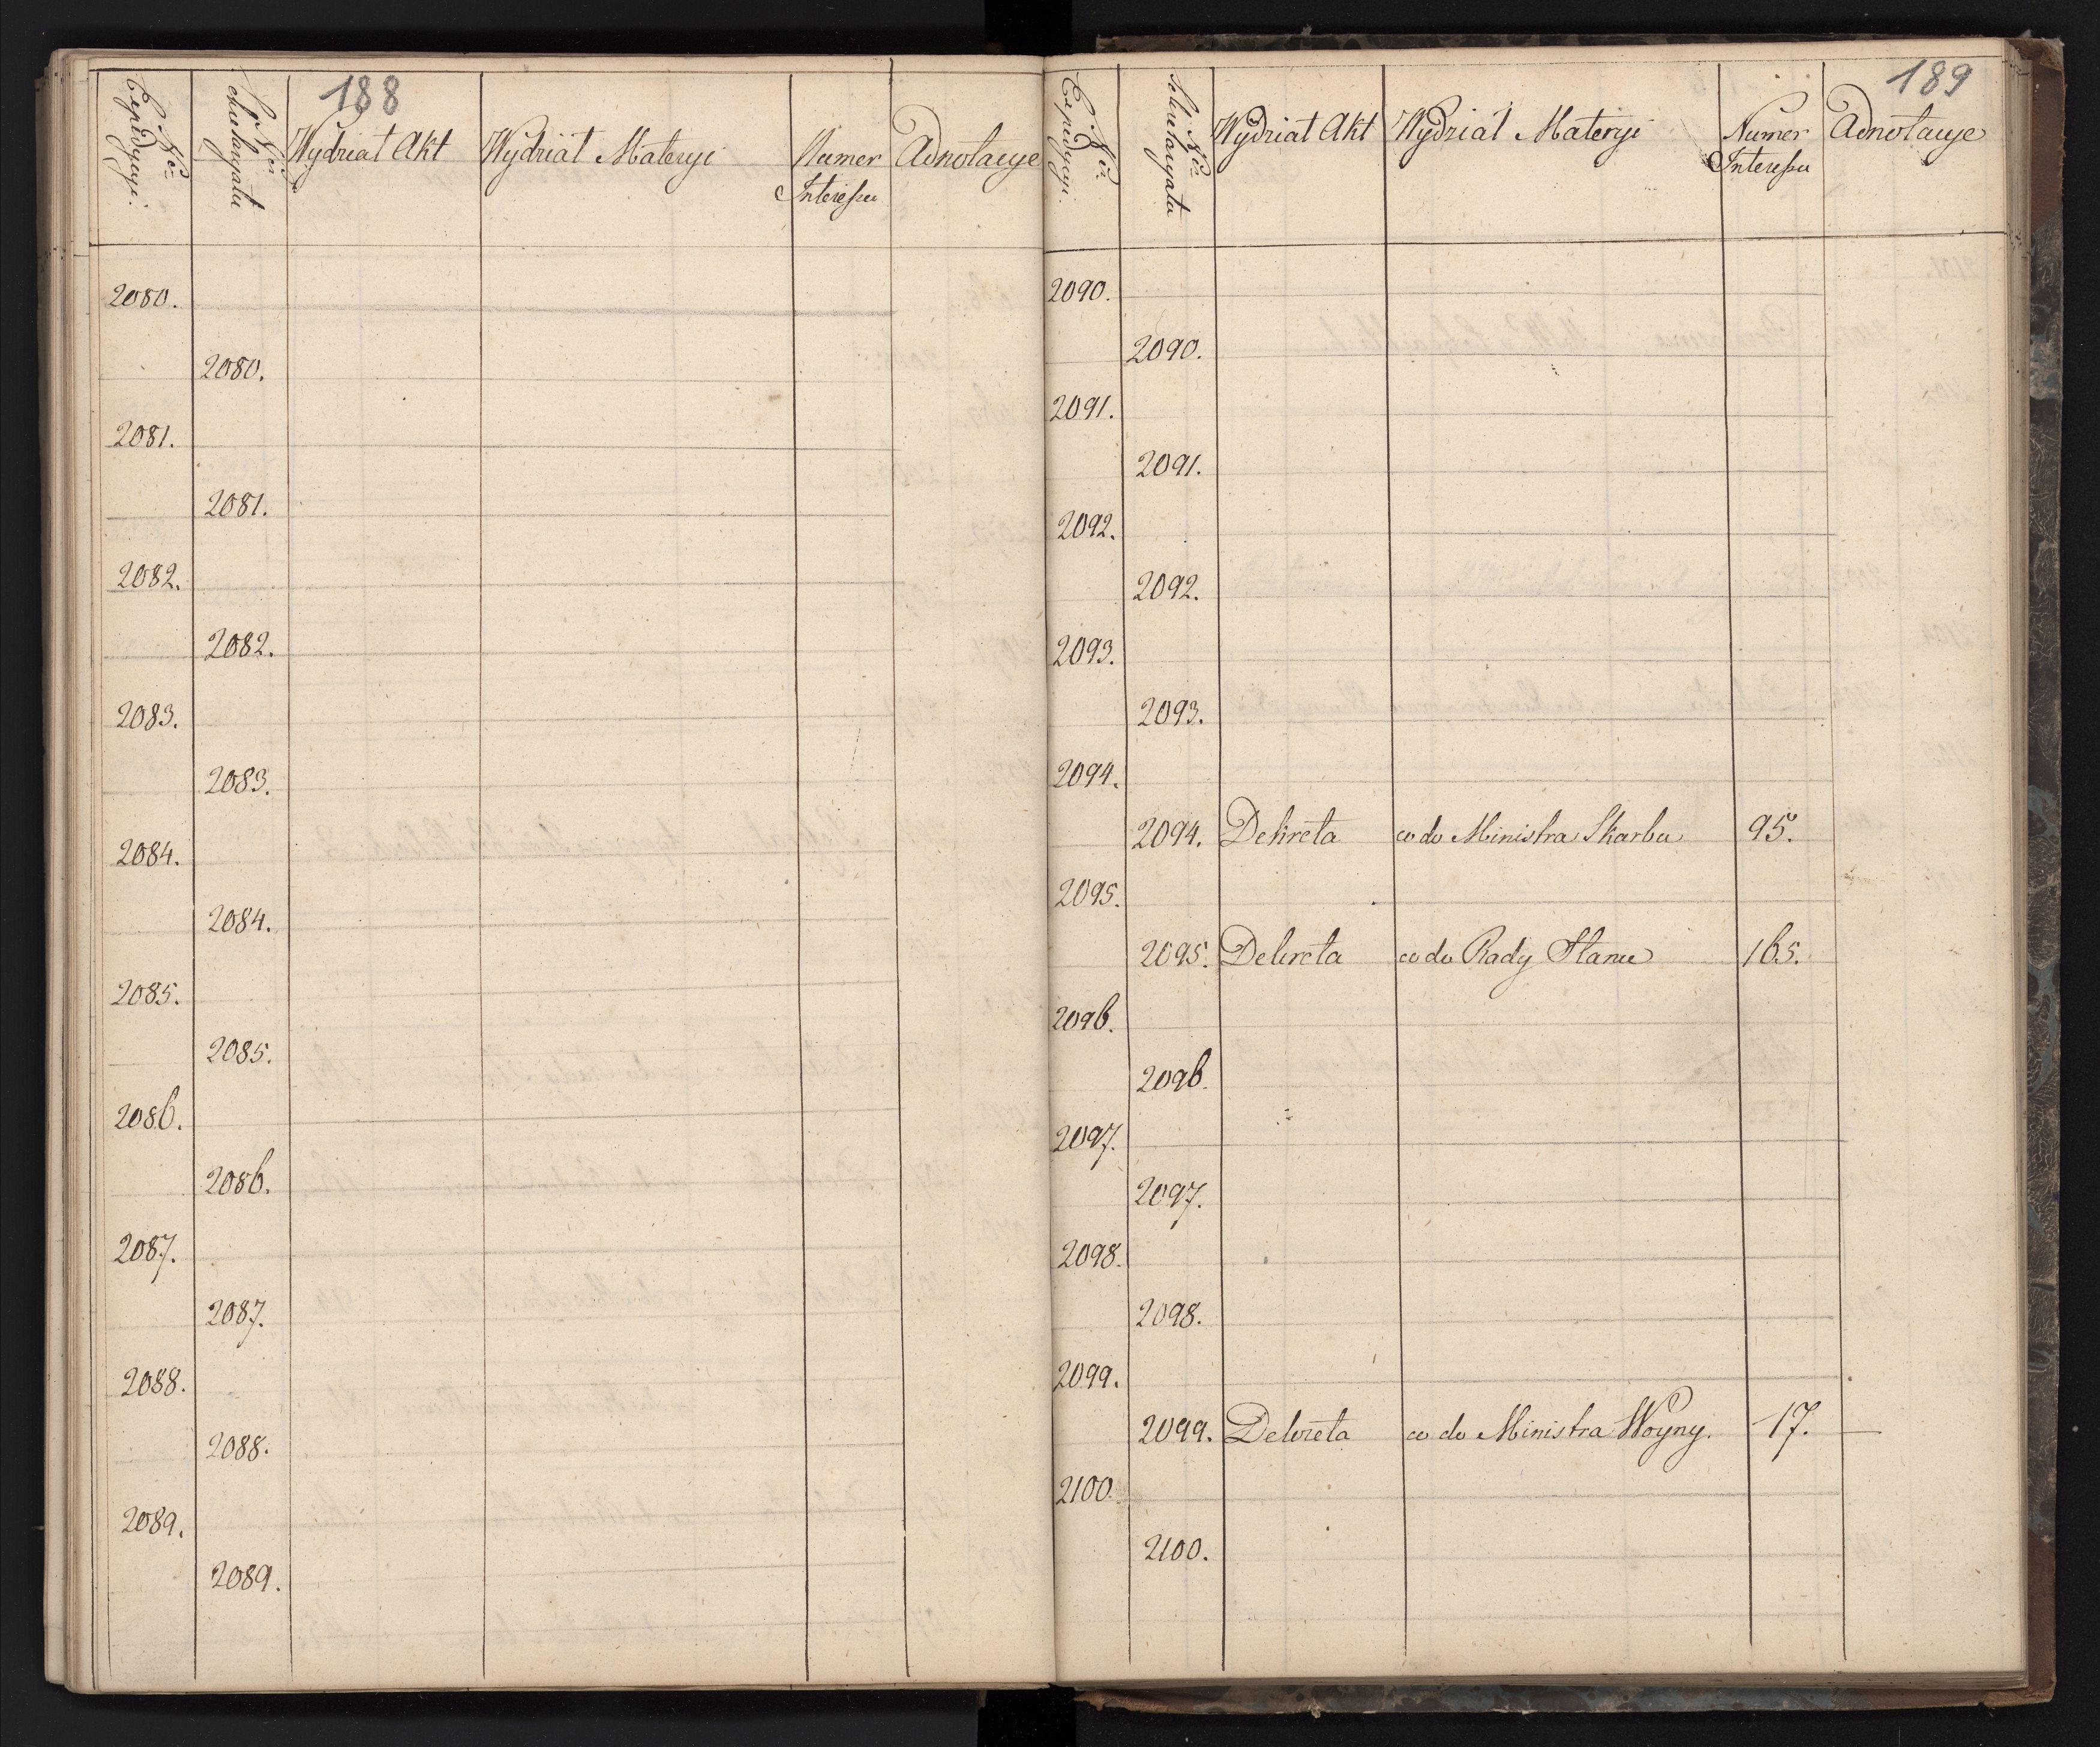 188
Nro Expedycyi.
Nro Sekretaryatu
Wydział Akt
Wydział Materyi
Numer
Interessu
Adnotacye
2080.
2080.
2081.
2081.
2082.
2082.
2083.
2083.
2084.
2084.
2085.
2085.
2086.
2086.
2087.
2087.
2088.
2088.
2089.
2089.
189
Nro Expedycyi.
Nro Sekretaryatu
Wydział Akt
Wydział Materyi
Numer
Interessu
Adnotacye
2090.
2090.
2091.
2091.
2092.
2092.
2093.
2093.
2094.
2094. Dekreta co do Ministra Skarbu 95.
2095.
2095. Dekreta co do Rady Stanu 165.
2096.
2096.
2097.
2097.
2098.
2098.
2099.
2099. Dekreta co do Ministra Woyny. 17.
2100.
2100.